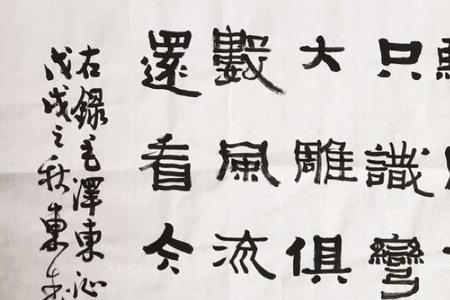 只識彎
大雕俱
數風流
還看今
右錄毛澤東沁
戊戌之秋東